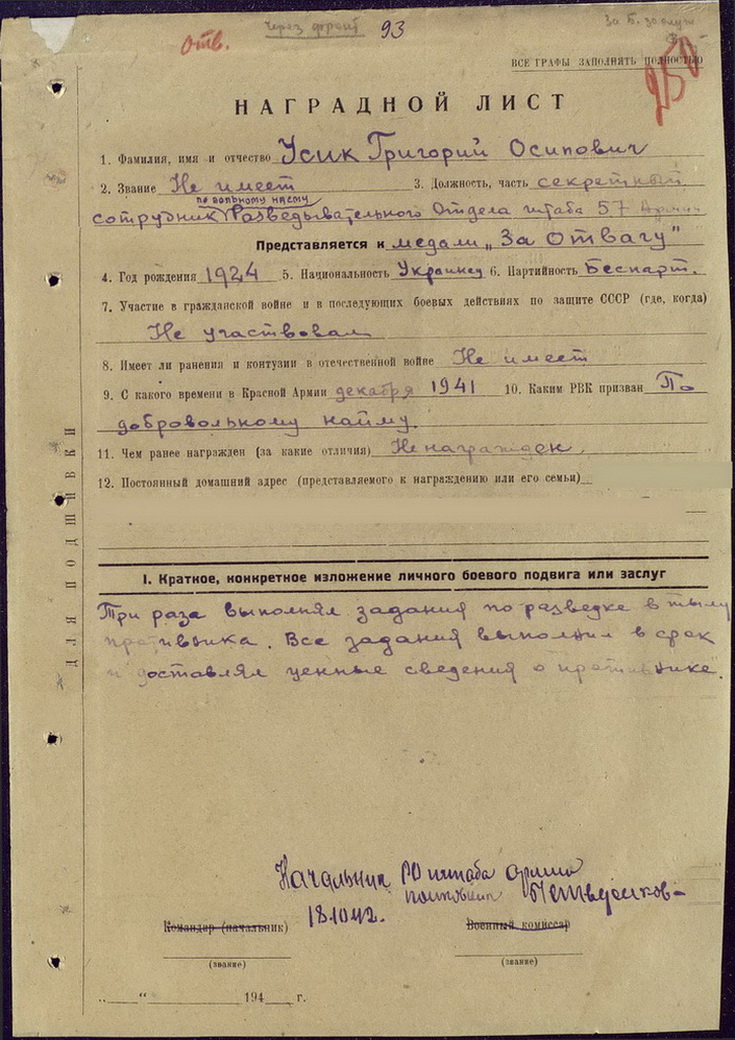 Отв.
через фронт
93
за Б. заслуги
250
ВСЕ ГРАФЫ ЗАПОЛНЯТЬ ПОЛНОСТЬЮ
НАГРАДНОЙ ЛИСТ
1. Фамилия, имя и отчество Усик Григорий Осипович
2. Звание Не имеет 3. Должность, часть секретный
по вольному найму
сотрудник Разведывательного Отдела штаба 57 Армии
Представляется к медали „За Отвагу"
4. Год рождения 1924 5. Национальность Украинец 6. Партийность Беспарт.
7. Участие в гражданской войне и в последующих боевых действиях по защите СССР (где, когда)
Не участвовал
8. Имеет ли ранения и контузии в отечественной войне Не имеет
9. С какого времени в Красной Армии декабря 1941 10. Каким РВК призван По
добровольному найму.
11. Чем ранее награжден (за какие отличия) Не награжден.
12. Постоянный домашний адрес (представляемого к награждению или его семьи)
I. Краткое, конкретное изложение личного боевого подвига или заслуг
Три раза выполнял задания по разведке в тылу
противника. Все задания выполнил в срок
и доставлял ценные сведения о противнике.
Начальник РО штаба армии
полковник
18.10.42.
Командир (начальник) Военный комиссар
(звание) (звание)
„ “ 194 г.
ДЛЯ ПОДШИВКИ